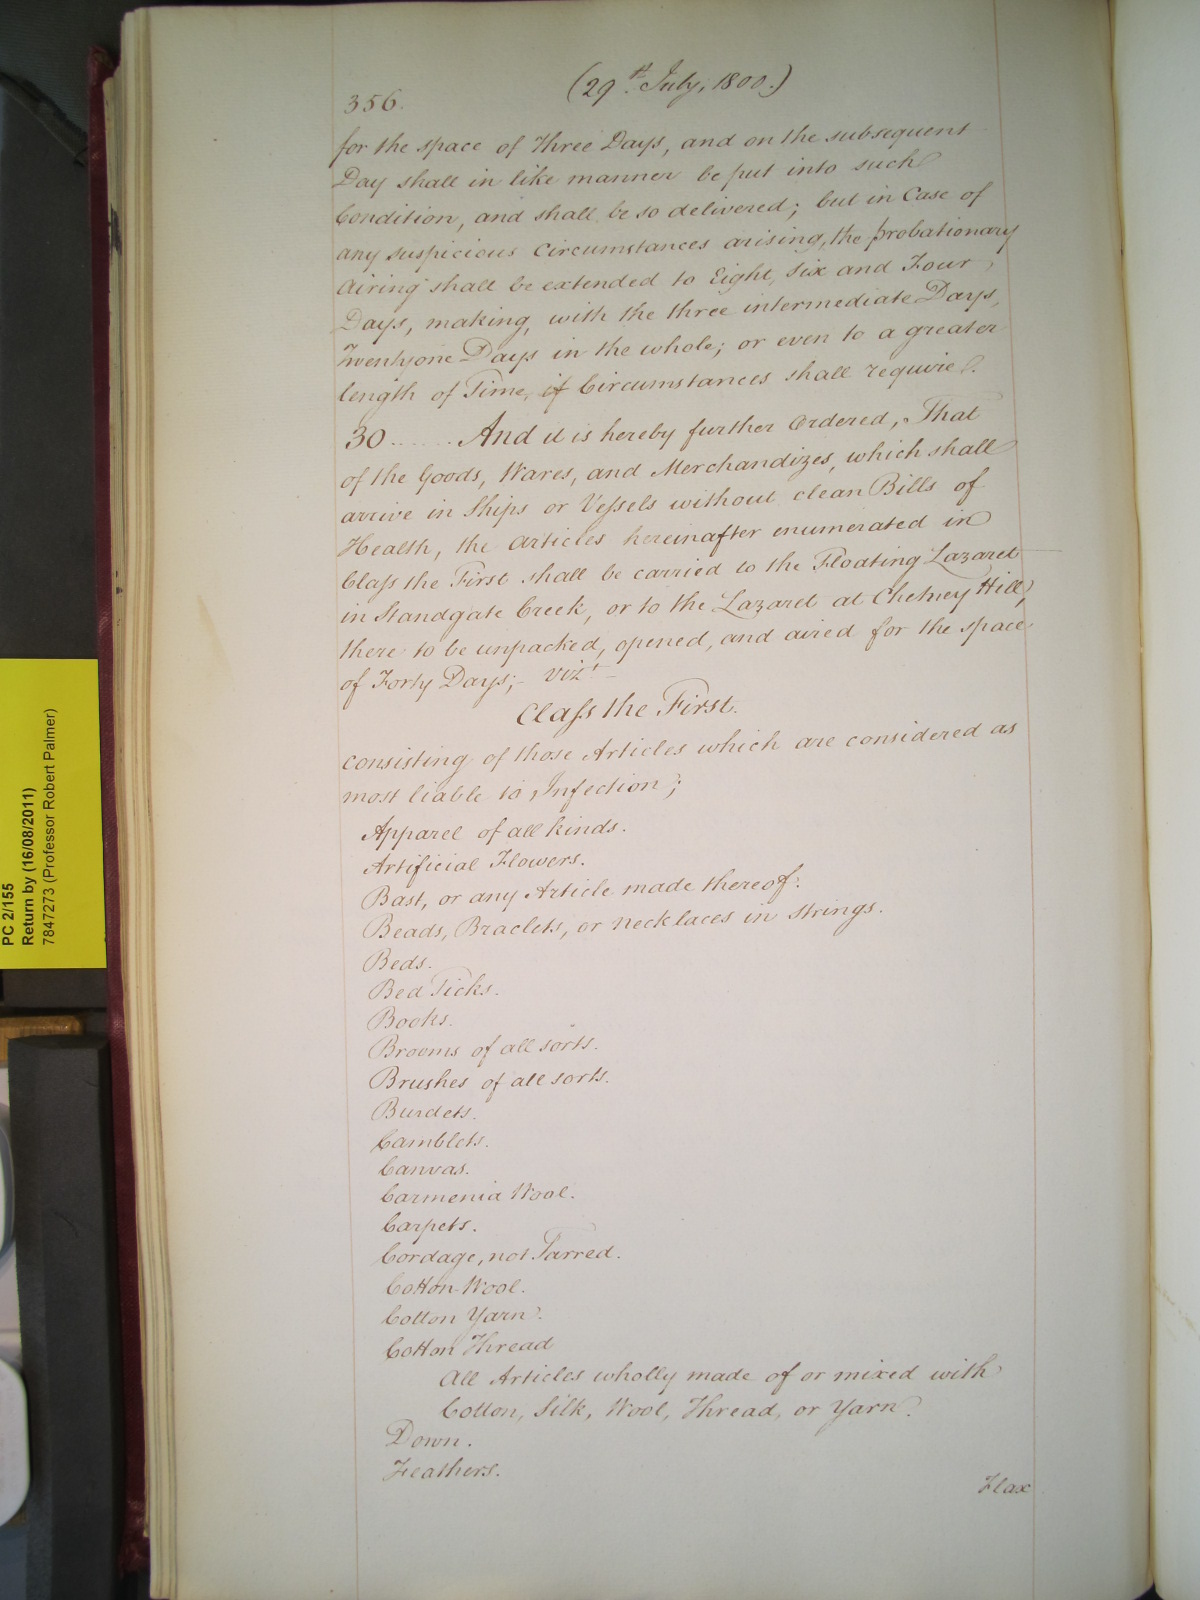 356.
(29th July, 1800.)
for the space of Three Days, and on the subsequent
Day shall in like manner be put into such
Condition, and shall be so delivered; but in Case of
any suspicious Circumstances arising, the probationary
Airing shall be extended to Eight, Six and Four
Days, making, with the three intermediate Days,
Twentyone Days in the whole; or even to a greater
length of Time, if Circumstances shall require.
30...... And it is hereby further Ordered, That
of the Goods, Wares, and Merchandizes, which shall
arrive in Ships or Vessels without clean Bills of
Health, the Articles hereinafter enumerated in
Class the First shall be carried to the Floating Lazaret
in Standgate Creek, or to the Lazaret at Chetney Hill,
there to be unpacked, opened, and aired for the space
of Forty Days;- Vizt-
Class the First.
consisting of those Articles which are considered as
most liable to Infection;
Apparel of all kinds.
Artificial Flowers.
Bast, or any Article made thereof.
Beads, Braclets, or necklaces in Strings.
Beds.
Bed Ticks.
Books.
Brooms of all sorts.
Brushes of all sorts.
Burdets.
Camblets.
Canvas.
Carmenia Wool.
Carpets.
Cordage, not Tarred.
Cotton-Wool.
Cotton Yarn.
Cotton Thread
All Articles wholly made of or mixed with
Cotton, Silk, Wool, Thread, or Yarn.
Down.
Feathers.
Flax
PC 2/155
Return by (16/08/2011)
7847273 (Professor Robert Palmer)